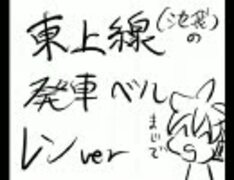 東上線(池袋)の
発車ベル
レンver
まじで